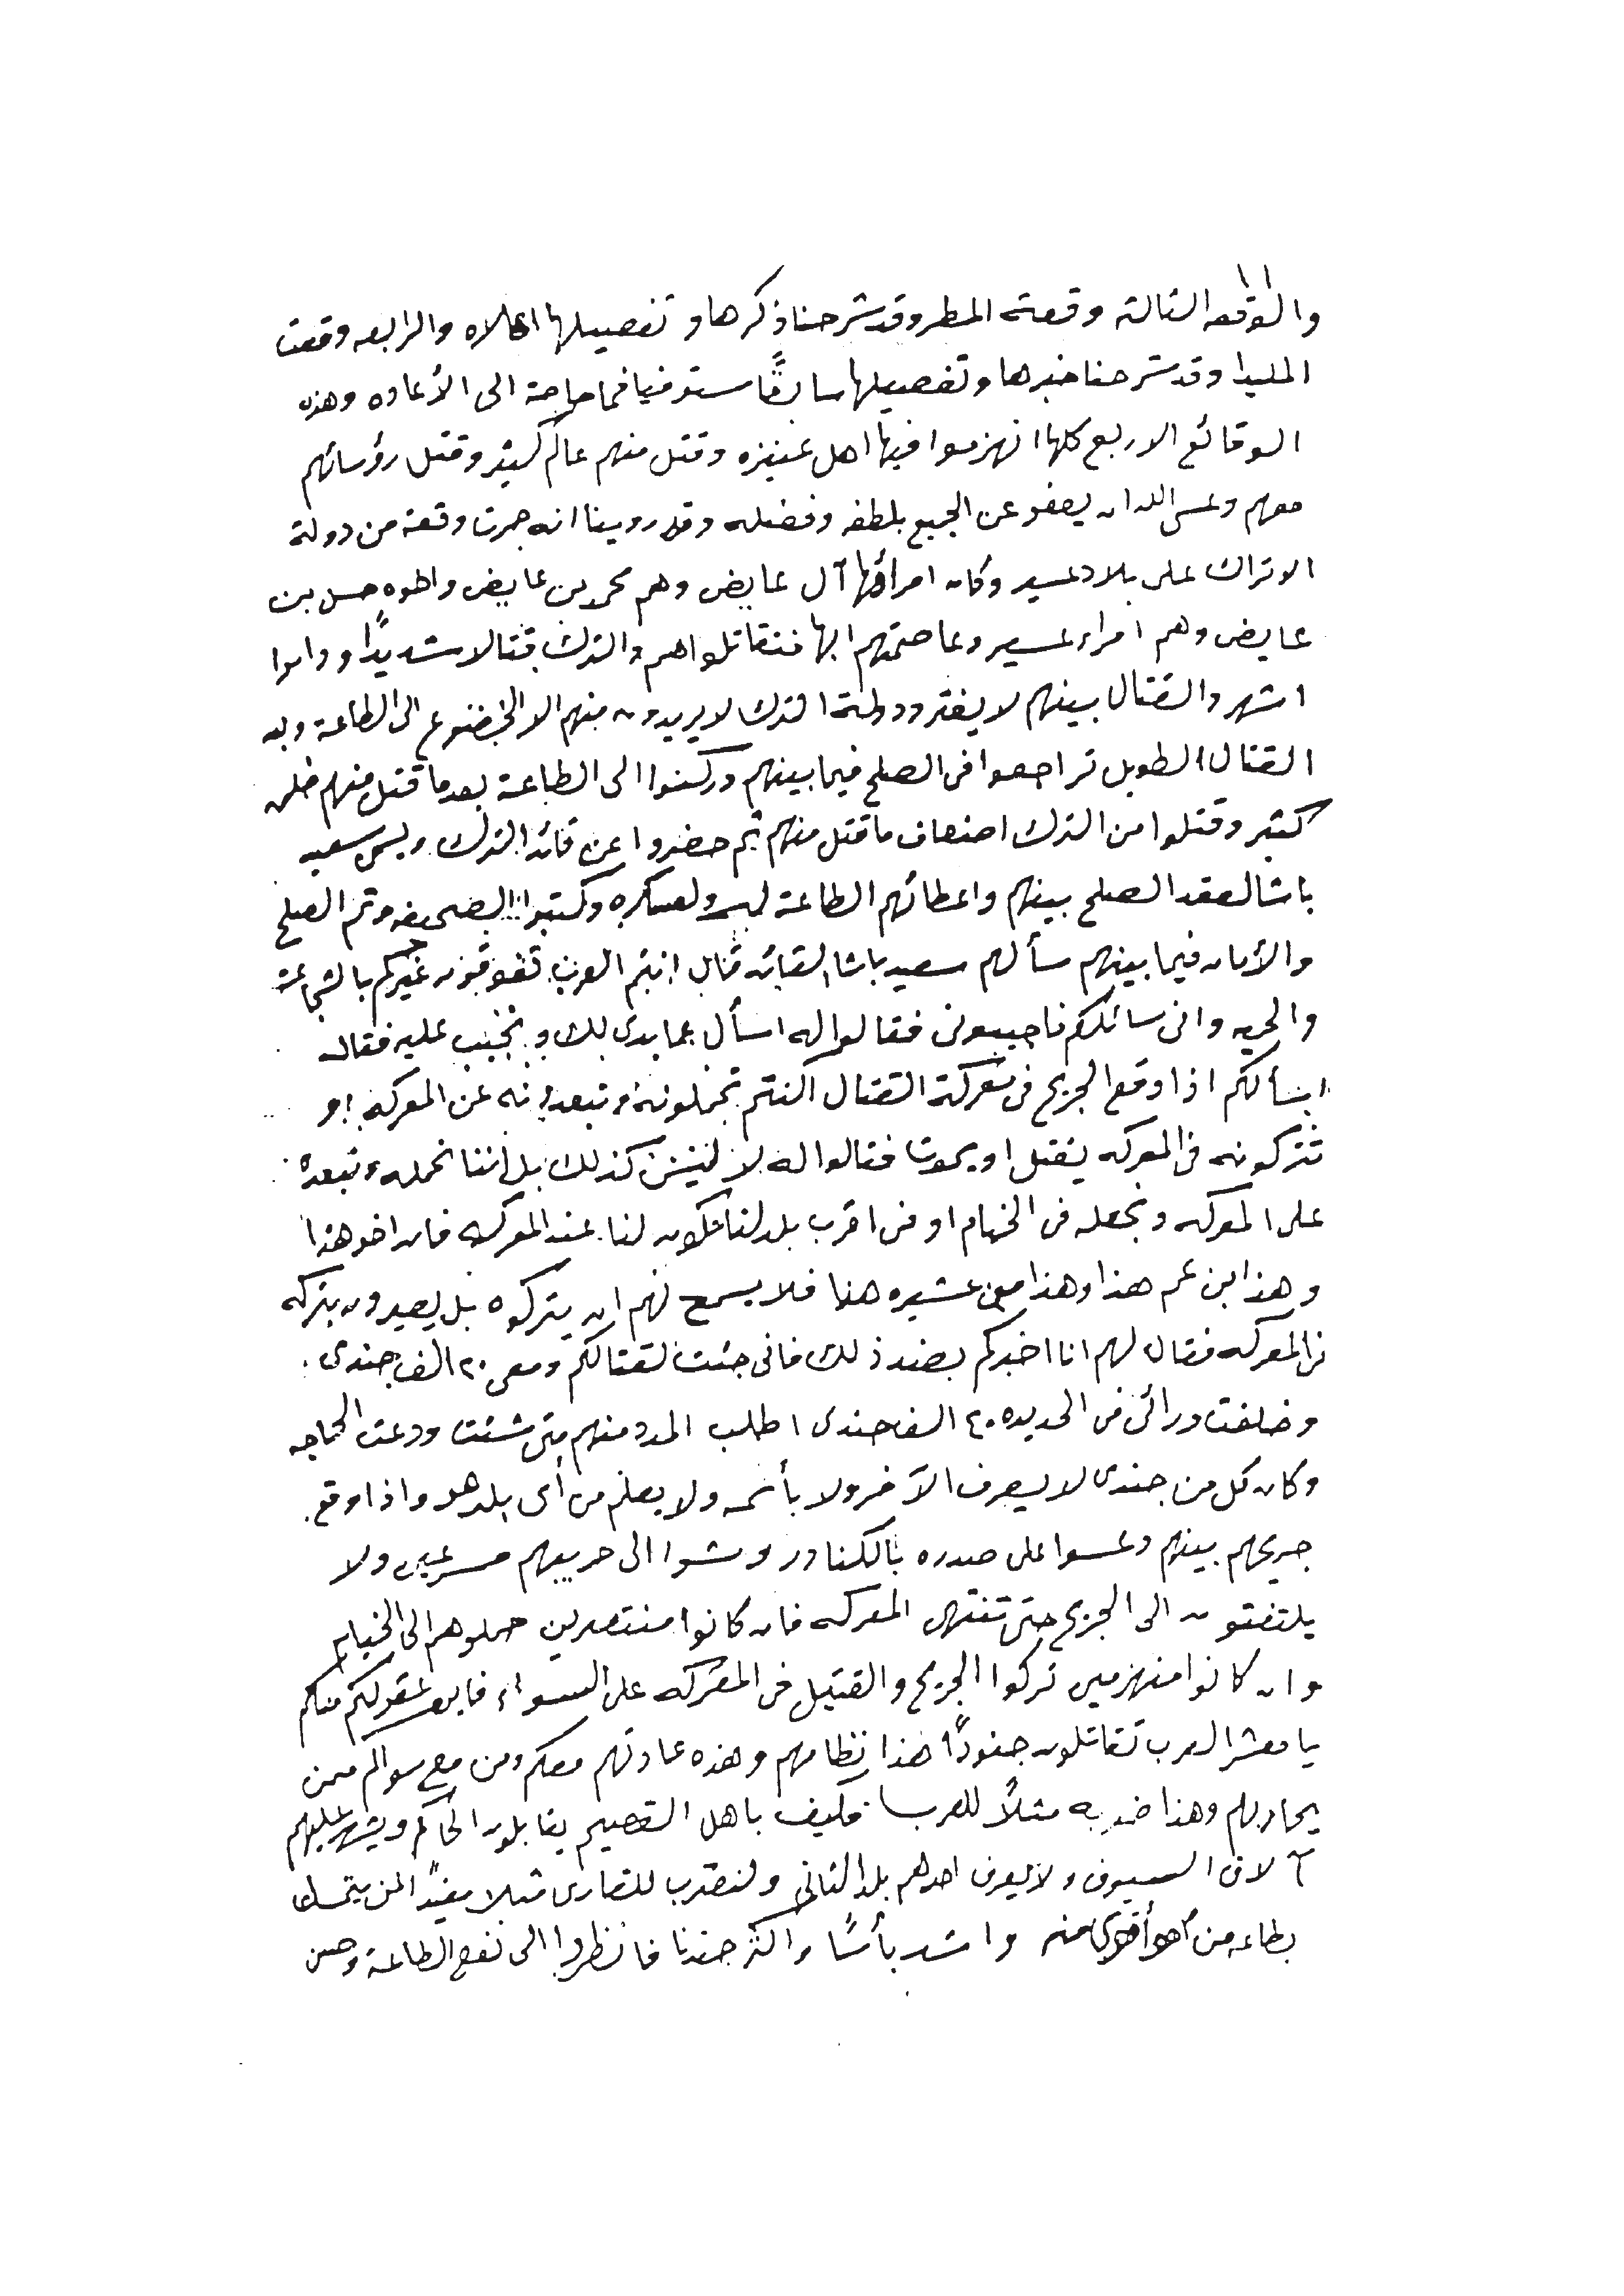 ١١
والوقعه الثالثة وقعة المطر وقد شرحنا ذكرها وتفصيلها اعلاه والرابعه وقعت
المليدا وقد شرحنا خبرها وتفصيلها سابقًا مستوفيا فما حاجة الى الأعاده وهذه
الوقائع الاربع كلها انهزموا فيها اهل عنيزه وقتل منهم عالم كثير وقتل رؤسائهم
معهم وعسى الله ان يعفو عن الجميع بلطفه وفضله وقد روينا انه جرت وقعة من دولة
الاتراك على بلاد عسير وكان امرائها آل عايض وهم محمد بن عايض واخوه حسن بن
عايض وهم امراء عسير وعاصمتهم ابها فتقاتلوا هم والترك قتالا شديدًا وداموا
اشهر والقتال بينهم لا يفتر ودولة الترك لا يريدون منهم الا الخضوع الى الطاعة وبعد
القتال الطويل تراجعوا في الصلح فيما بينهم وركنوا الى الطاعة بعد ما قتل منهم خلق
كثير وقتلوا من الترك اضعاف ما قتل منهم ثم حضروا عن قائد الترك ويسمى سعيد
باشا لعقد الصلح بينهم واعطائهم الطاعة له ولعسكره وكتبوا الصحيفه وتم الصلح
والأمان فيما بينهم سألهم سعيد باشا القائد قال انتم العرب تفوقون غيركم بالشجاعة
والحميه واني سائلكم فاجيبوني فقالوا له اسأل عما بدى لك ونجيب عليه فقال
اسألكم اذا وقع الجريح في معركة القتال اكنتم تحملونه وتبعدونه عن المعركه او
تتركونه في المعركه يقتل او يموت فقالوا له لا ليس كذلك بل اننا نحمله ونبعده
على المعركه ونجعله في الخيام او في اقرب بلد لنا تكون لنا عند المعركه فان اخو هذا
وهذا ابن عم هذا وهذا من عشيره هذا فلا يسمح لهم ان يتركوه بل يعيرون بتركه
في المعركه فقال لهم انا اخبركم بضد ذلك فاني جئت لقتالكم ومعي ٢٠ الف جندي
وخلفت ورائي في الحديده ٤٠ الف جندى اطلب المدد منهم متى شئت ودعت الحاجه
وكان كل من جندى لا يعرف الآخر ولا بأسمه ولا يعلم من أي بلد هو واذا وقع
جريحهم بينهم دعسوا على صدره بالكنادر ومشوا الى حريبهم مسرعين ولا
يلتفتون الى الجريح حتى تنتهي المعركه فان كانوا منتصرين حملوهم الى الخيام
وان كانوا منهزمين تركوا الجريح والقتيل في المعركه على السواء فاين عقولكم منكم
يا معشر العرب تقاتلون جنودًا هذا نظامهم وهذه عادتهم معكم ومن مع سواكم ممن
يحاربهم وهذا ضربه مثلاً للعرب فكيف باهل القصيم يقابلون الحاكم ويشهر عليهم
آلاف السيوف ولا يعرف احدهم بلد الثاني ولنضرب للقارى مثلا مفيدًا لمن يتمسك
بطاعة من هو أقوى منه واشد بأسًا واكثر جندنا فانظروا الى نفع الطاعة وحسن